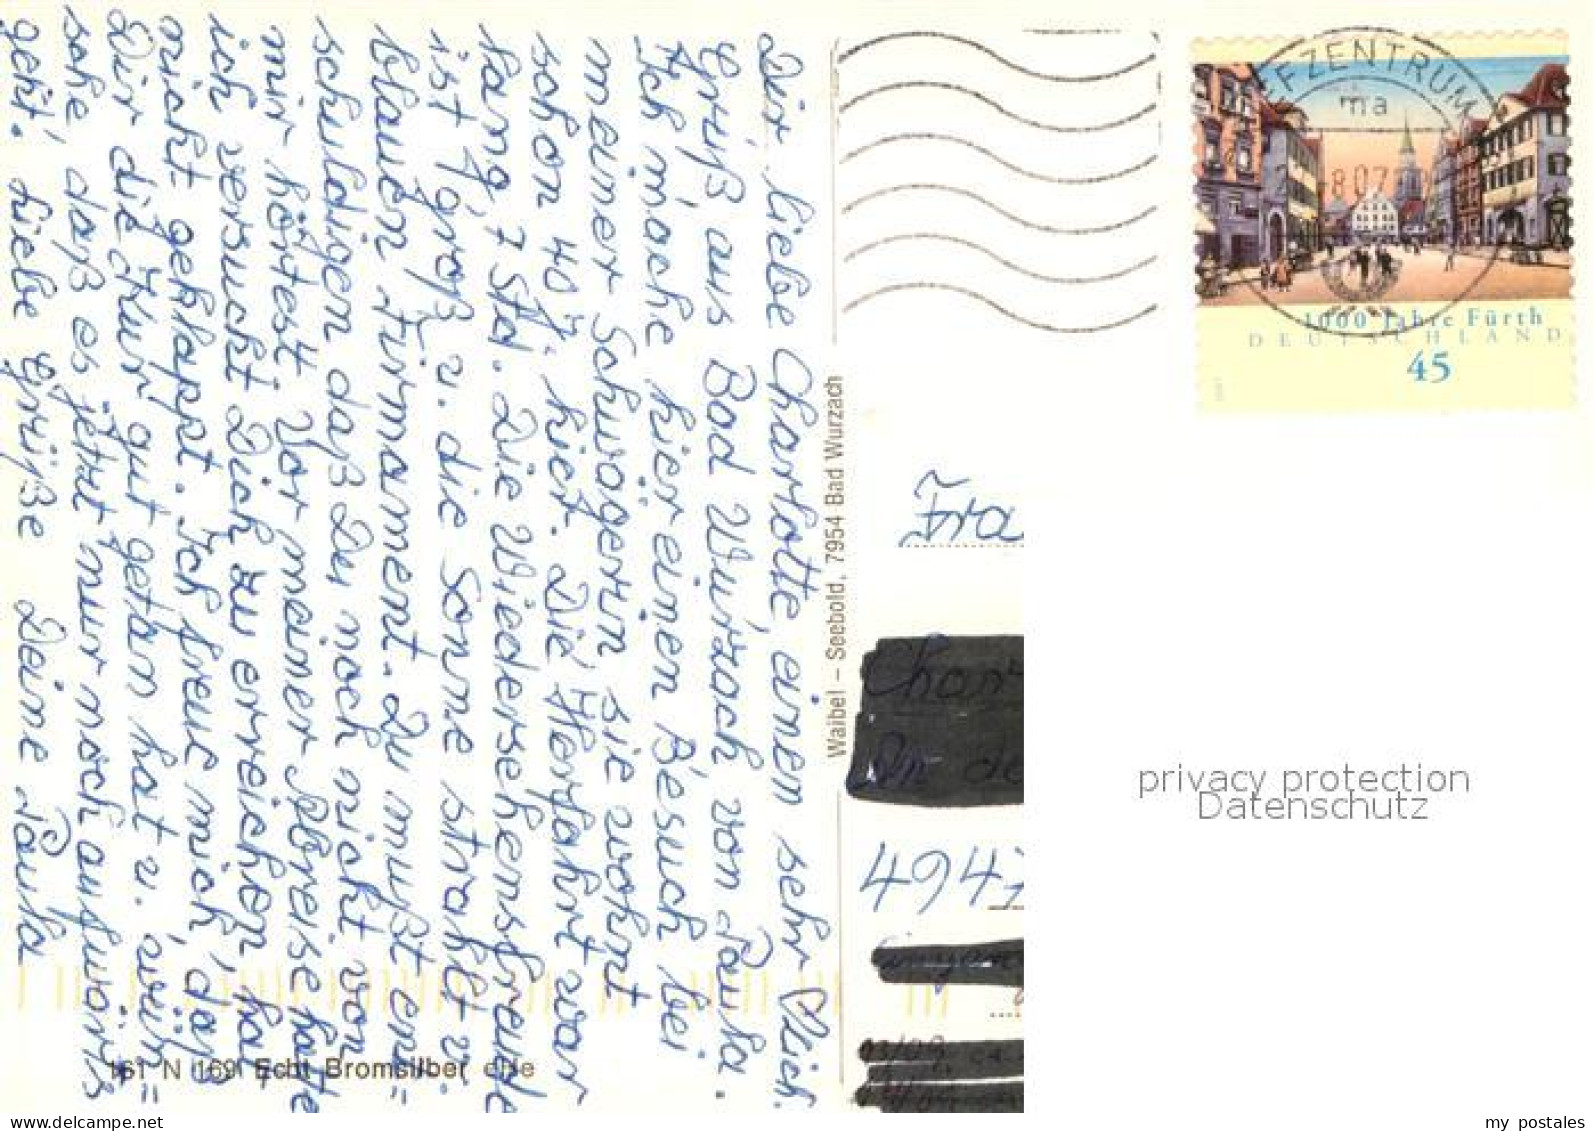 Dir liebe Charlotte, einen sehr ♡lich.
Gruß aus Bad Wurzach, von Paula.
Ich mache hier einen Besuch bei
meiner Schwägerin sie wohnt
schon 40 J. hier. Die Herfahrt war
lang, 7 Std. Die Wiedersehensfreude
ist groß u. die Sonne strahlt v.
blauen Firmament. Du mußt ent=
schuldigen daß Du noch nicht von
mir hörtest. Vor meiner Abreise hatte
ich versucht Dich zu erreichen, hat
nicht geklappt. Ich freue mich, daß
Dir die Kur gut getan hat u. wün=
sche, daß es jetzt nur noch aufwärts
geht. Liebe Grüße Deine Paula
Waibel – Seebold, 7954 Bad Wurzach
161 N 169 Echt Bromsilber
FZENTRUM
ma
8.07
1000 Jahre Fürth
DEUTSCHLAND
45
Fra
Char
An de
494
privacy protection
Datenschutz
my postales